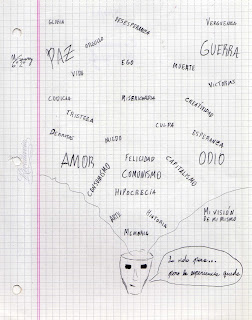 GLORIA
DESESPERANZA
VERGUENZA
PAZ
ORGULLO
GUERRA
VIDA
EGO
MUERTE
VICTORIAS
CODICIA
MISERICORDIA
CREATIVIDAD
TRISTEZA
DERROTAS
MIEDO
CULPA
ESPERANZA
AMOR
FELICIDAD
CAPITALISMO
ODIO
CONSUMISMO
COMUNISMO
HIPOCRECIA
ARTE
HISTORIA
MI VISIÓN
DE MI MISMO
MEMORIA
La vida pasa...
pero la experiencia queda.